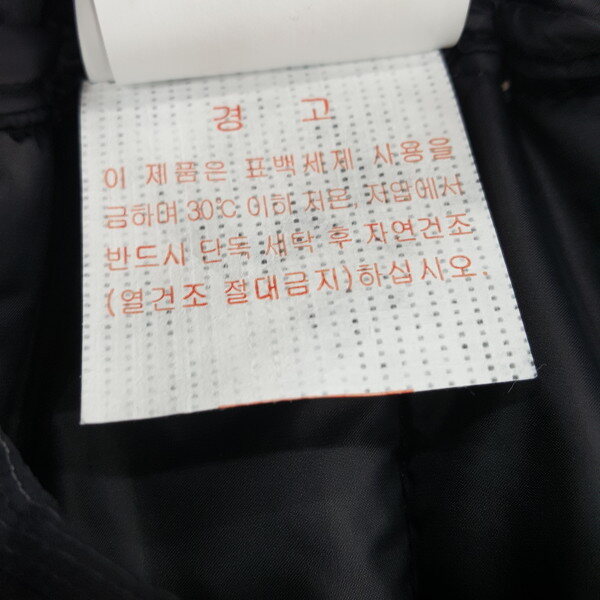 경 고
이 제품은 표백세제 사용을
금하며 30℃ 이하 저온, 자압에서
반드사 단독 세탁 후 자연건조
(열건조 절대금지)하십시오.